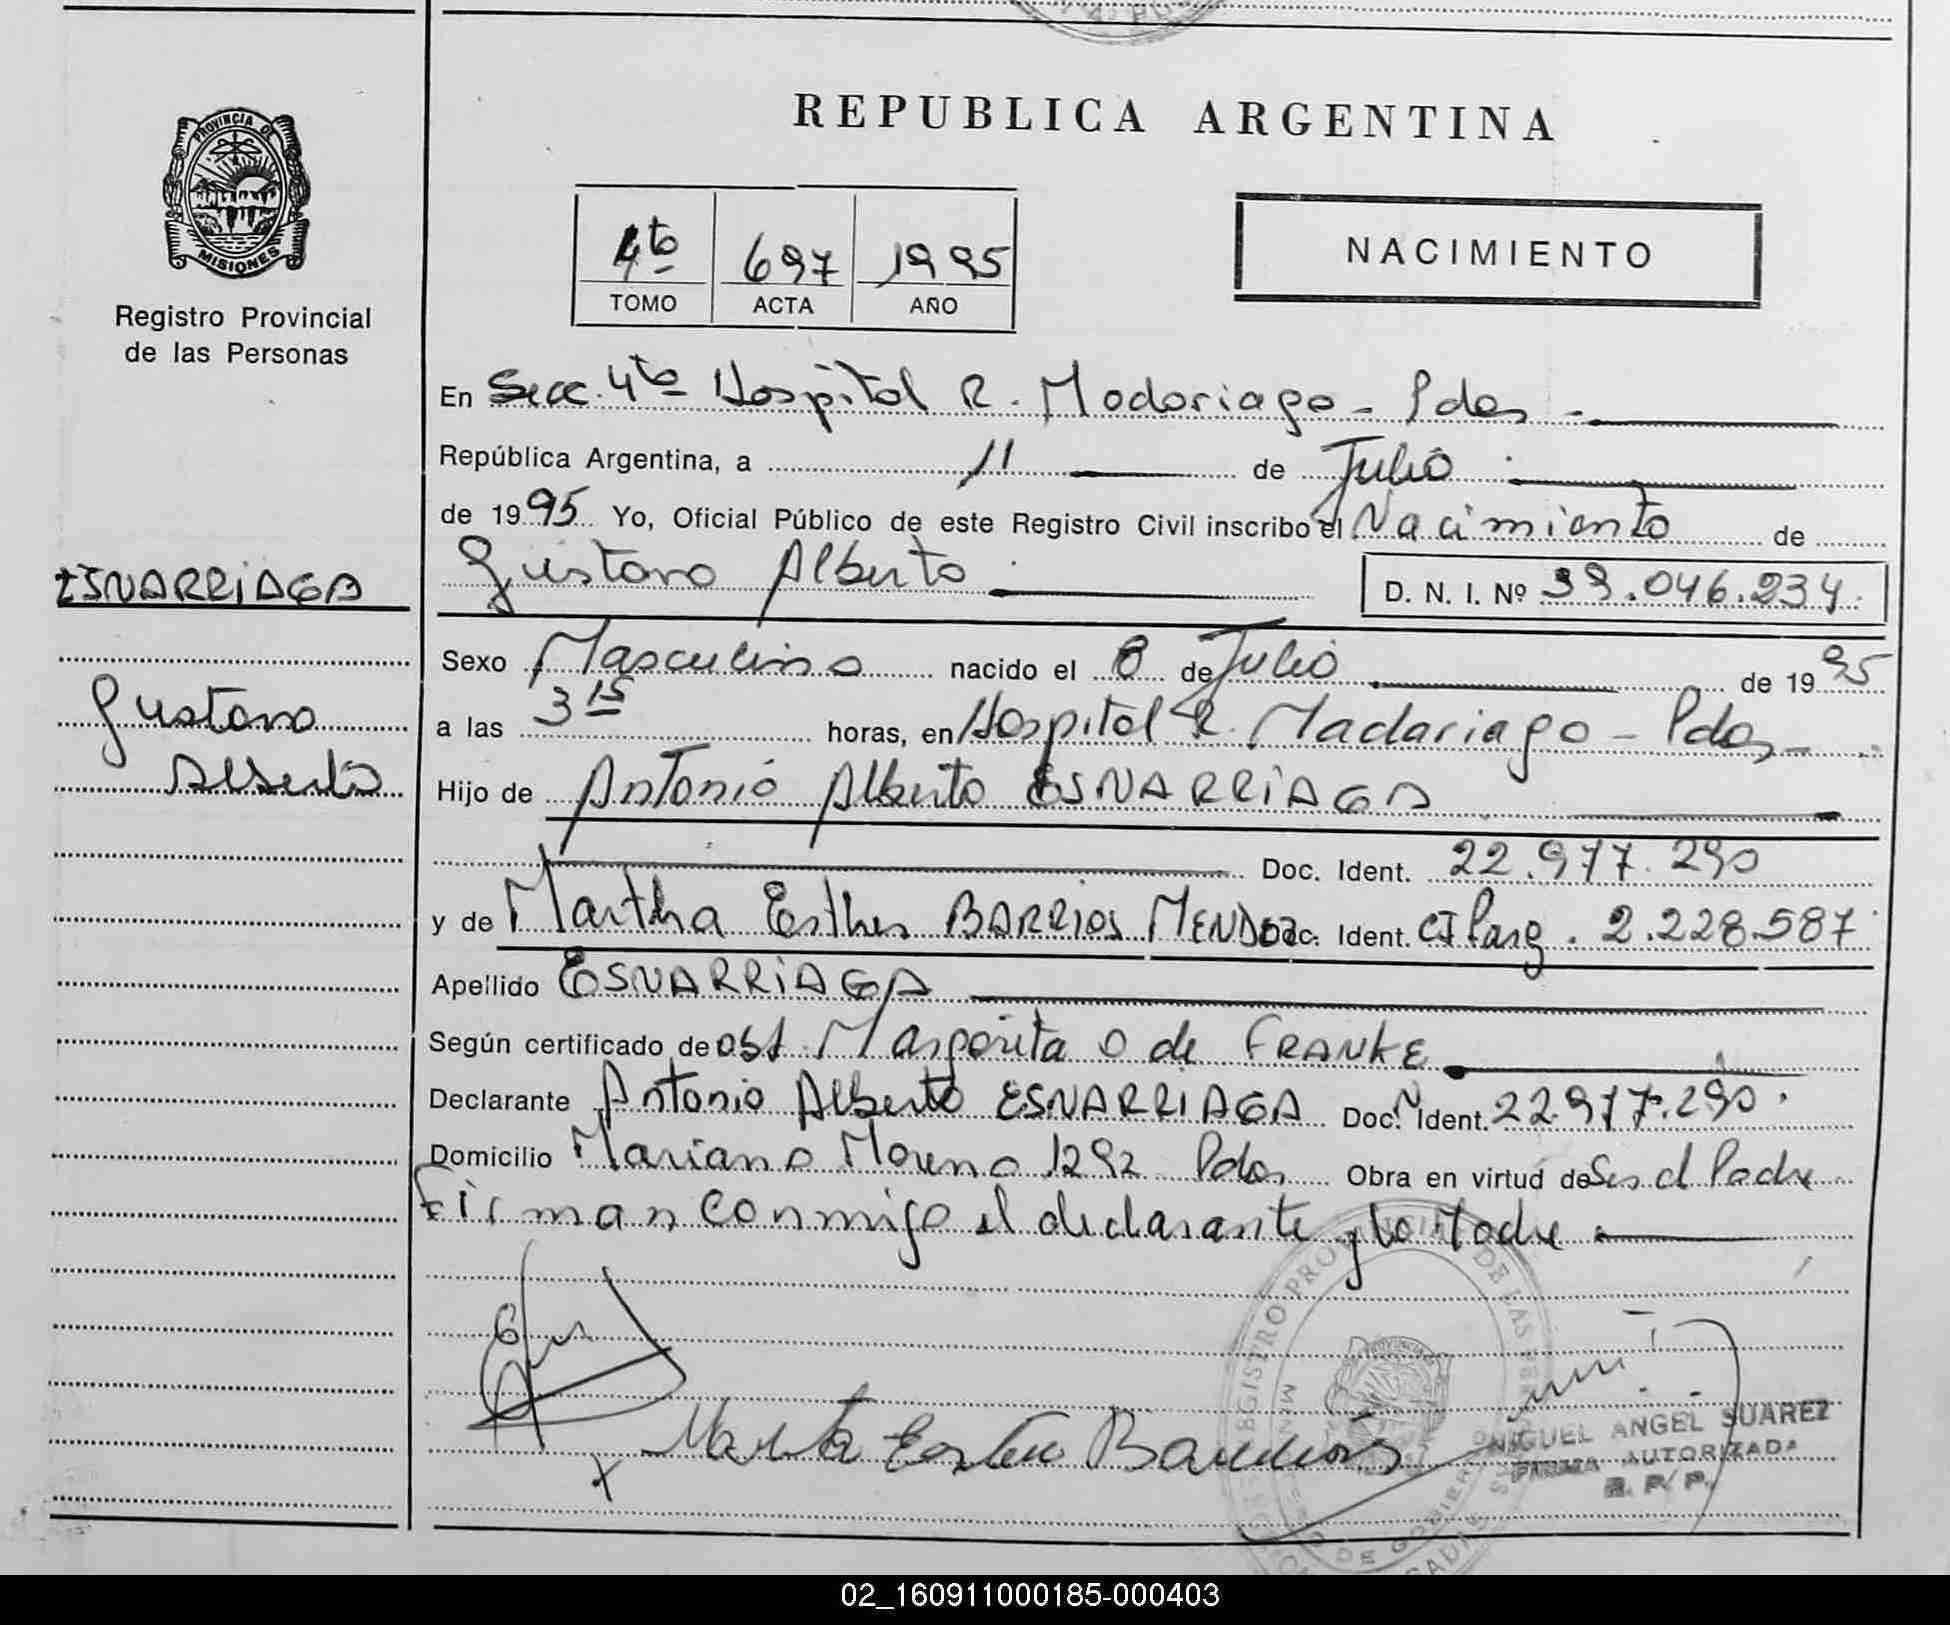 PROVINCIA DE
MISIONES
Registro Provincial
de las Personas
ESNARRIAGA
Gustavo
Alberto
REPUBLICA ARGENTINA
4to 697 1995
TOMO ACTA AÑO
NACIMIENTO
En Secc. 4ta Hospital R. Madariaga - Pdas -
República Argentina, a 11 de Julio
de 1995 Yo, Oficial Público de este Registro Civil inscribo el Nacimiento de
Gustavo Alberto D. N. I. Nº 39.046.234.
Sexo Masculino nacido el 8 de Julio de 1995
a las 3 15 horas, en Hospital R. Madariaga - Pdas -
Hijo de Antonio Alberto ESNARRIAGA
Doc. Ident. 22.977.290
y de Martha Esther BARRIOS MENDOZ Doc. Ident. CI Parg. 2.228.587
Apellido ESNARRIAGA
Según certificado de obst. Margarita O de FRANKE
Declarante Antonio Alberto ESNARRIAGA Doc. Ident. 22.977.290.
Domicilio Mariano Moreno 1292 Pdas. Obra en virtud de Ser el Padre
Firman conmigo el declarante y la Madre
Marta Ester Barrios
MIGUEL ANGEL SUAREZ
FIRMA AUTORIZADA
R. P. P.
02_160911000185-000403